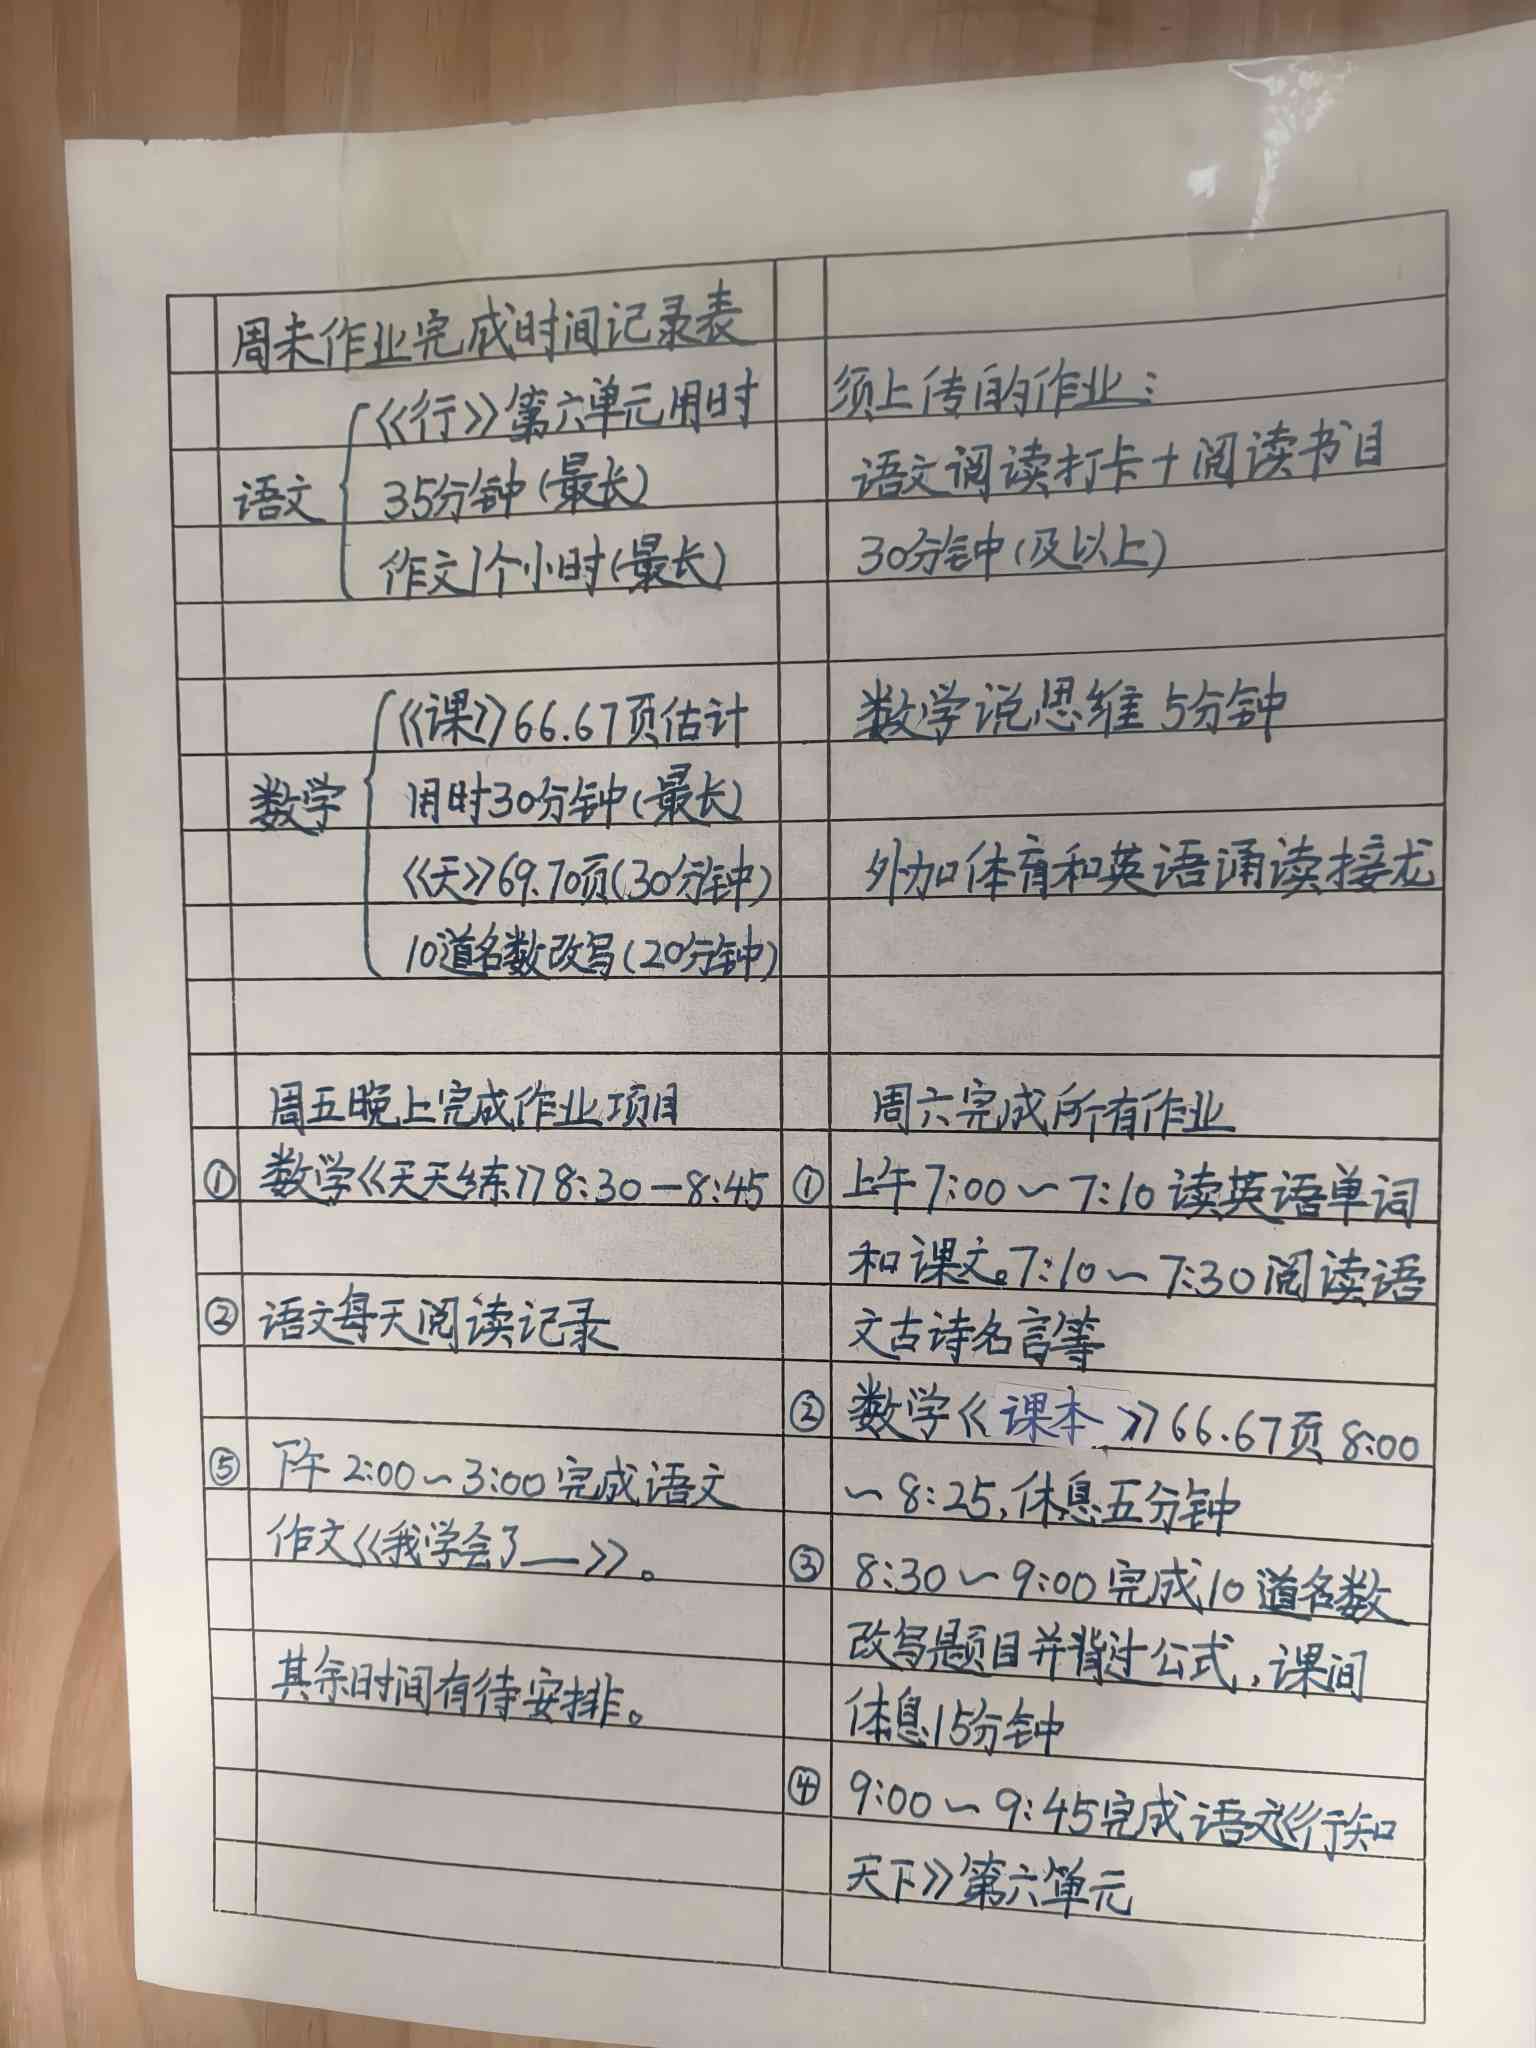 周末作业完成时间记录表
语文
《行》第六单元用时
35分钟(最长)
作文1个小时(最长)
数学
《课》66.67页估计
用时30分钟(最长)
《天》69.70页(30分钟)
10道名数改写(20分钟)
须上传的作业:
语文阅读打卡+阅读书目
30分钟(及以上)
数学说思维5分钟
外加体育和英语诵读接龙
周五晚上完成作业项目
① 数学《天天练》8:30-8:45
② 语文每天阅读记录
周六完成所有作业
① 上午7:00~7:10读英语单词
和课文。7:10~7:30阅读语
文古诗名言等
② 数学《课本》66.67页8:00
~8:25,休息五分钟
③ 8:30~9:00完成10道名数
改写题目并背过公式,课间
休息15分钟
④ 9:00~9:45完成语文《行知
天下》第六单元
⑤ 下午2:00~3:00完成语文
作文《我学会了__》。
其余时间有待安排。